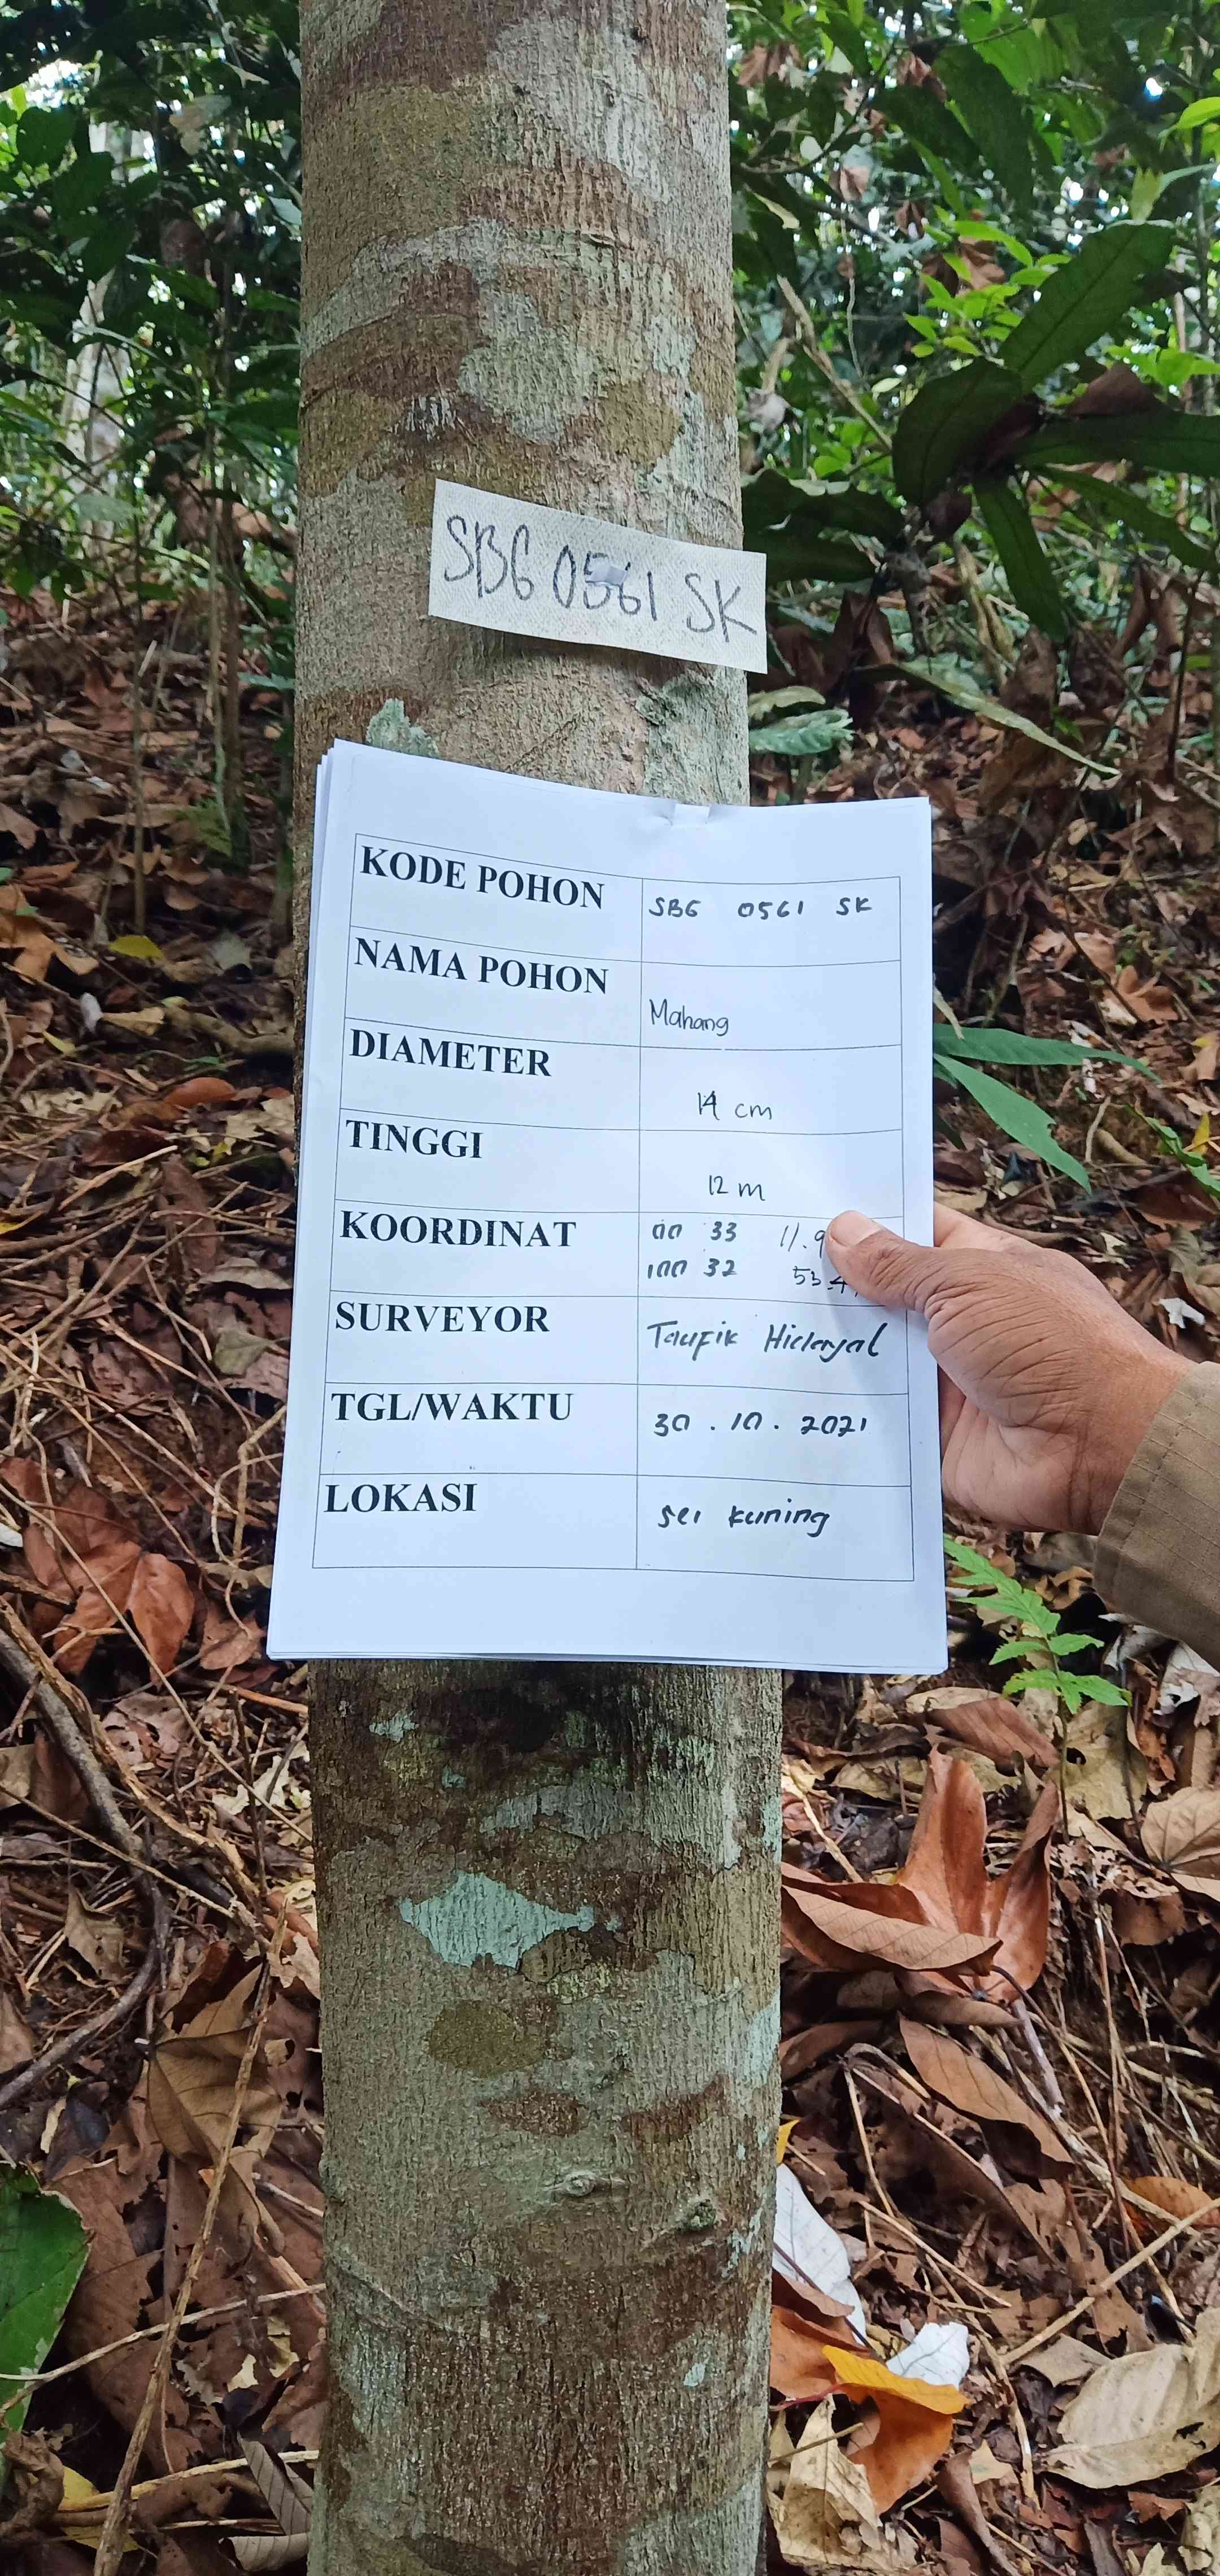 SBG 0561 SK
KODE POHON SBG 0561 SK
NAMA POHON Mahang
DIAMETER 14 cm
TINGGI 12 m
KOORDINAT 00 33 11.9
100 32 53.4
SURVEYOR Taufik Hidayat
TGL/WAKTU 30.10.2021
LOKASI sei kuning